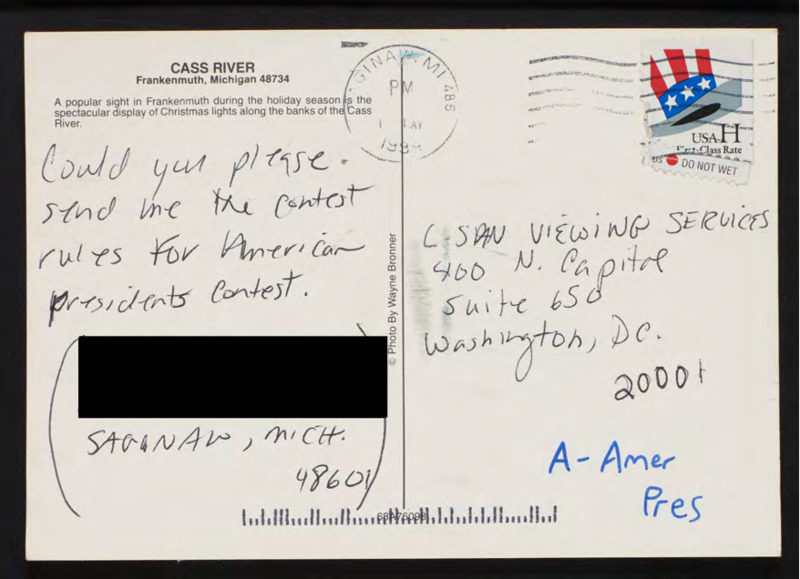 CASS RIVER
Frankenmuth, Michigan 48734
A popular sight in Frankenmuth during the holiday season is the
spectacular display of Christmas lights along the banks of the Cass
River.
Could you please.
send me the contest
rules for American
presidents contest.
SAGINAW, MICH.
48601
© Photo By Wayne Bronner
GINAW, MI 486
PM
1999
USA H
First-Class Rate
US DO NOT WET
C-SPAN VIEWING SERVICES
400 N. Capital
Suite 650
Washington, DC.
20001
A-Amer
Pres